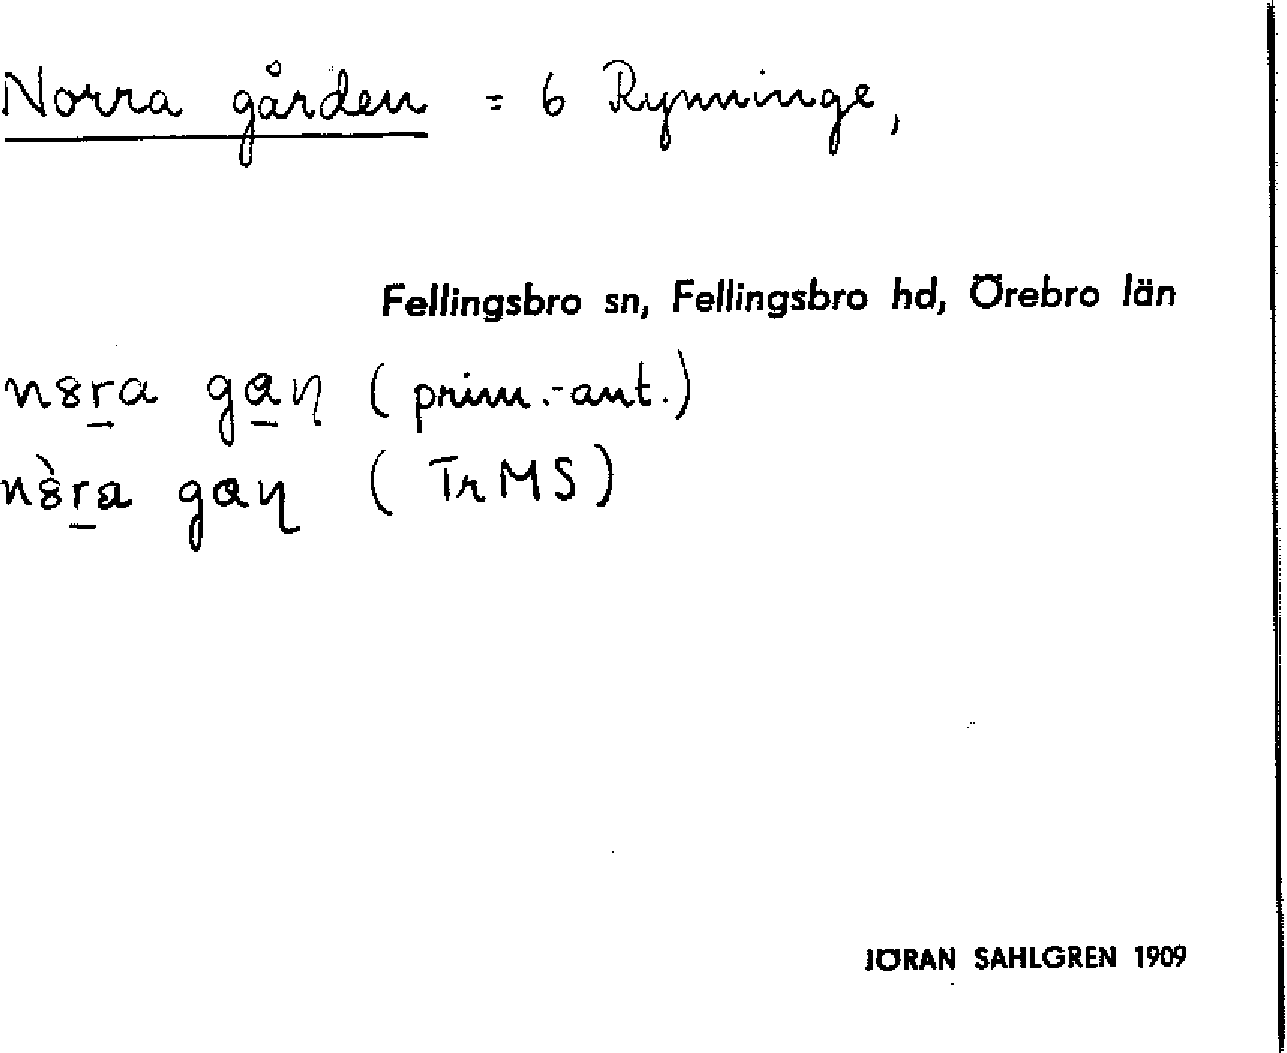 Norra gården = 6 Rynninge,
Fellingsbro sn, Fellingsbro hd, Örebro län
n8r̠a ga̠ɳ (prim.-ant.)
n8̀r̠a gaɳ (TrMS)
JÖRAN SAHLGREN 1909